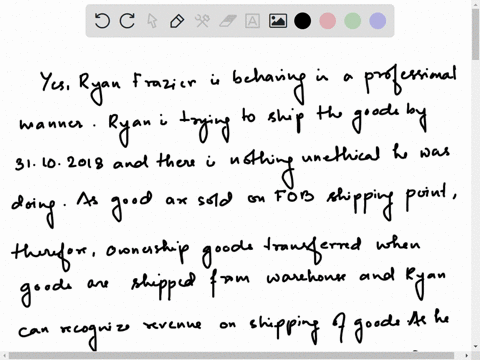 Yes, Ryan Frazier is behaving in a professional
manner. Ryan is trying to ship the goods by
31.10.2018 and there is nothing unethical he was
doing. As good are sold on FOB shipping point,
therefore, ownership goods transferred when
goods are shipped from warehouse and Ryan
can recognize revenue on shipping of goods. As he